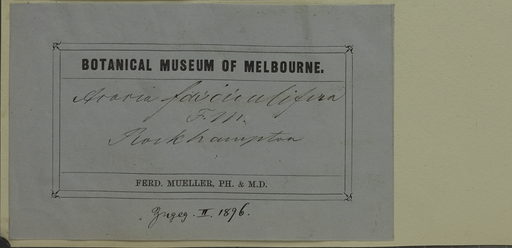 BOTANICAL MUSEUM OF MELBOURNE.
Acacia fasciculifera
F. M.
Rockhampton
FERD. MUELLER, PH. & M.D.
Zugeg. II. 1896.